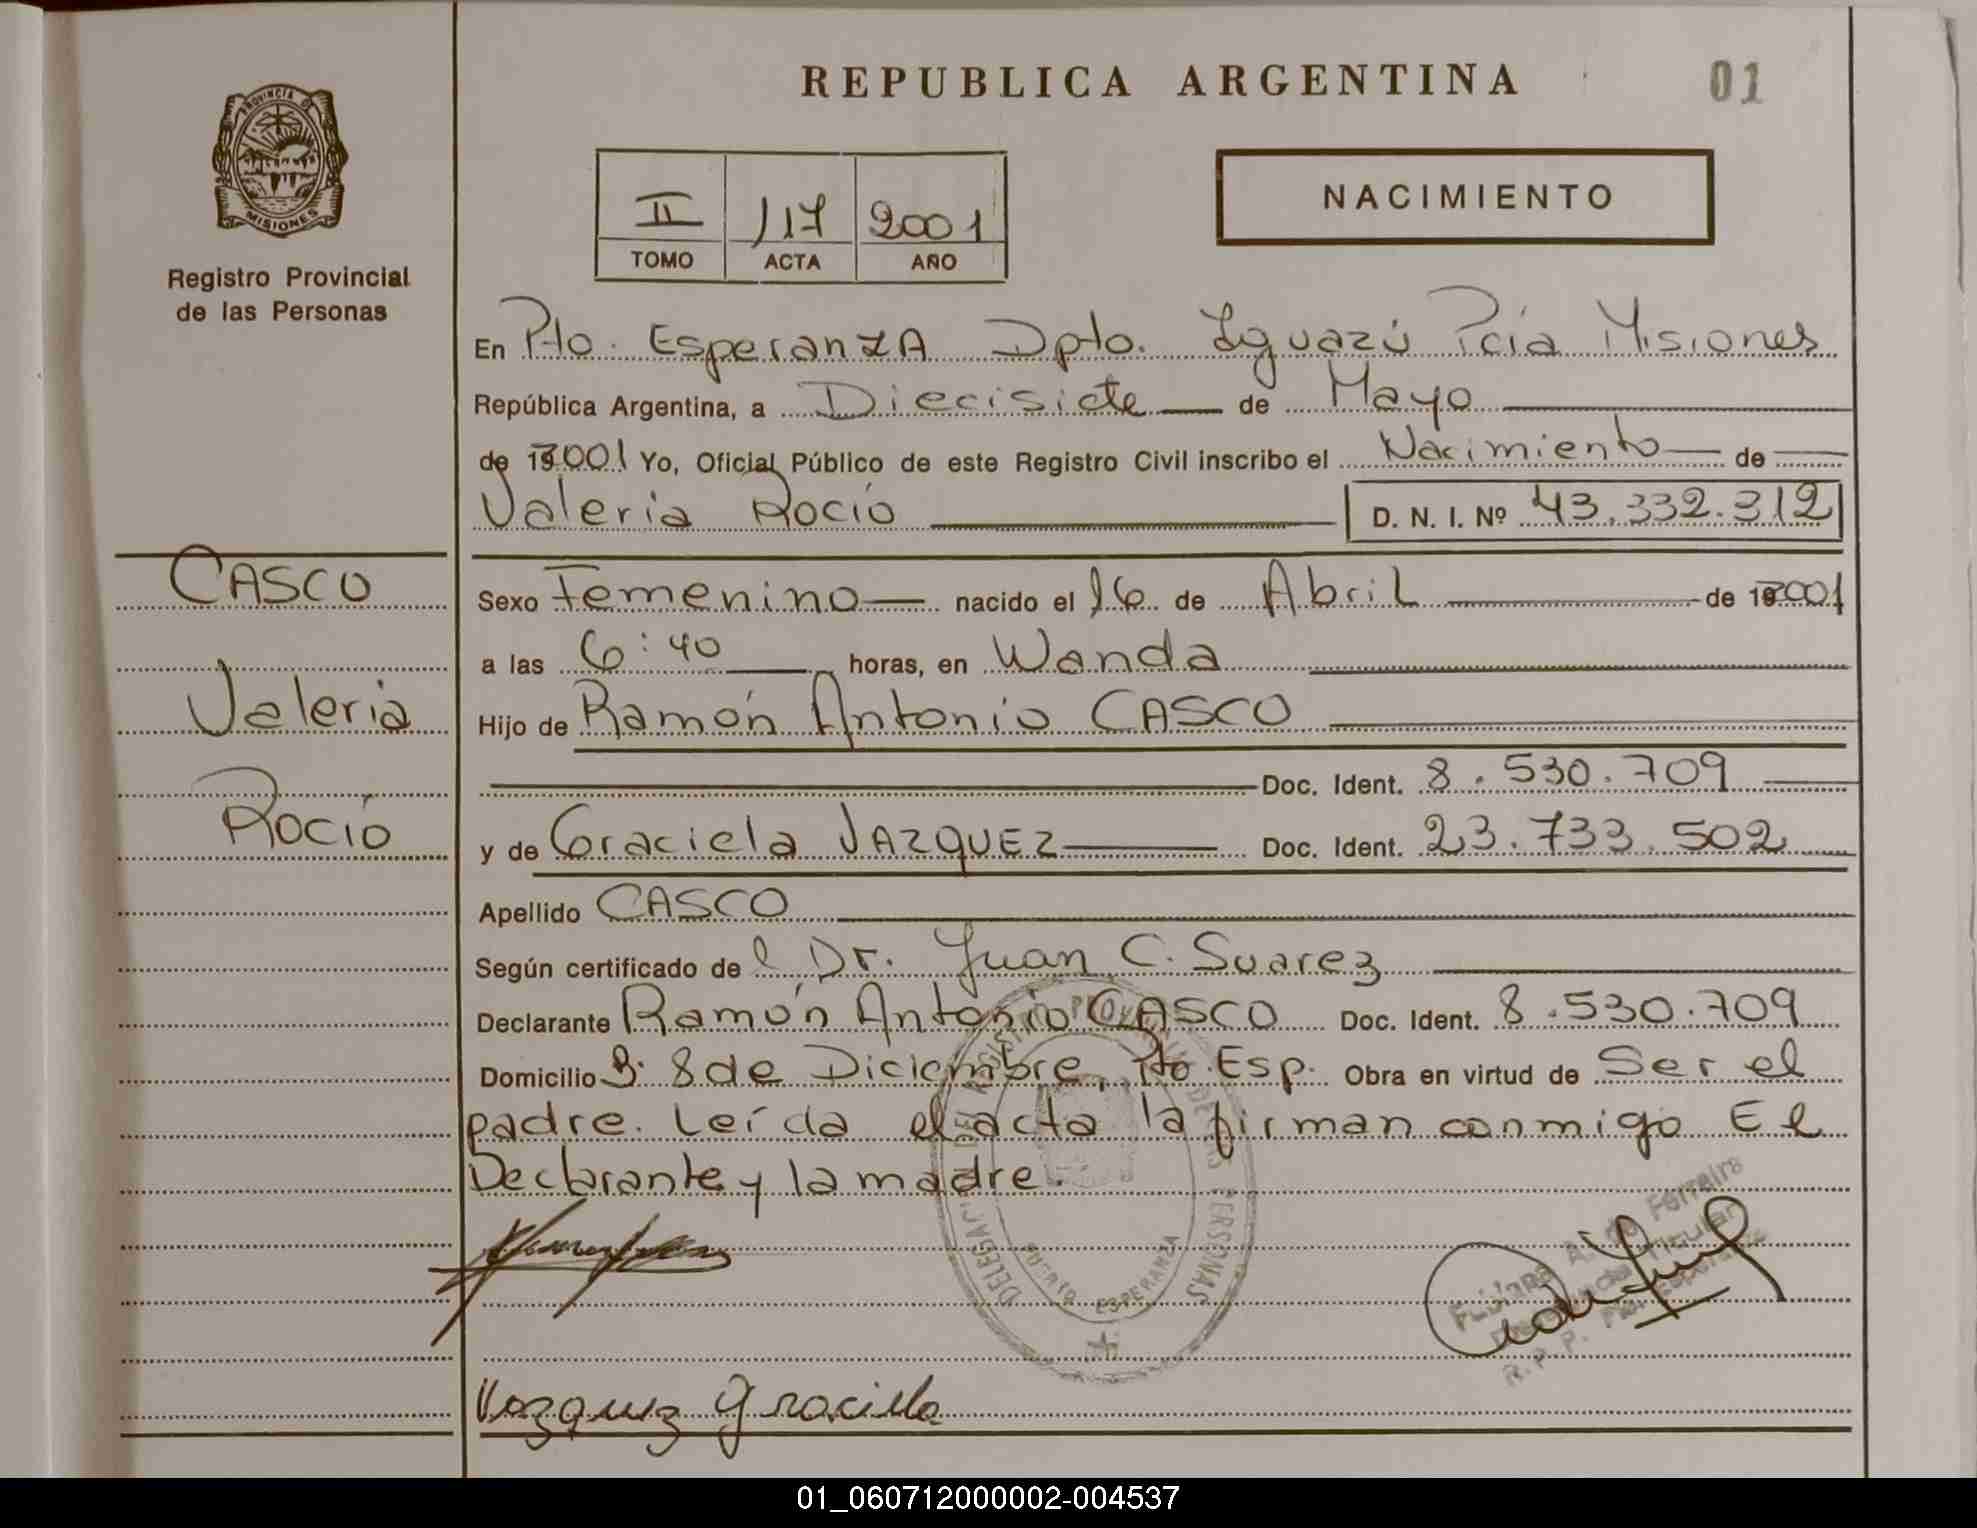 REPUBLICA ARGENTINA
01
PROVINCIA DE
MISIONES
Registro Provincial
de las Personas
NACIMIENTO
II 117 2001
TOMO ACTA AÑO
En Pto. Esperanza Dpto. Iguazú Pcia Misiones
República Argentina, a Diecisiete de Mayo
de 2001 Yo, Oficial Público de este Registro Civil inscribo el Nacimiento de
Valeria Rocío D. N. I. Nº 43.332.312
CASCO
Valeria
Rocío
Sexo Femenino nacido el 16 de Abril de 2001
a las 6:40 horas, en Wanda
Hijo de Ramón Antonio CASCO
Doc. Ident. 8.530.709
y de Graciela VAZQUEZ Doc. Ident. 23.733.502
Apellido CASCO
Según certificado de l Dr. Juan C. Suarez
Declarante Ramón Antonio CASCO Doc. Ident. 8.530.709
Domicilio B. 8 de Diciembre, Pto. Esp. Obra en virtud de Ser el
padre. Leída el acta la firman conmigo El
Declarante y la madre.
PERSONAS
ESPERANZA
Ferreira
R.P.P.
Vazquez Graciela
01_060712000002-004537